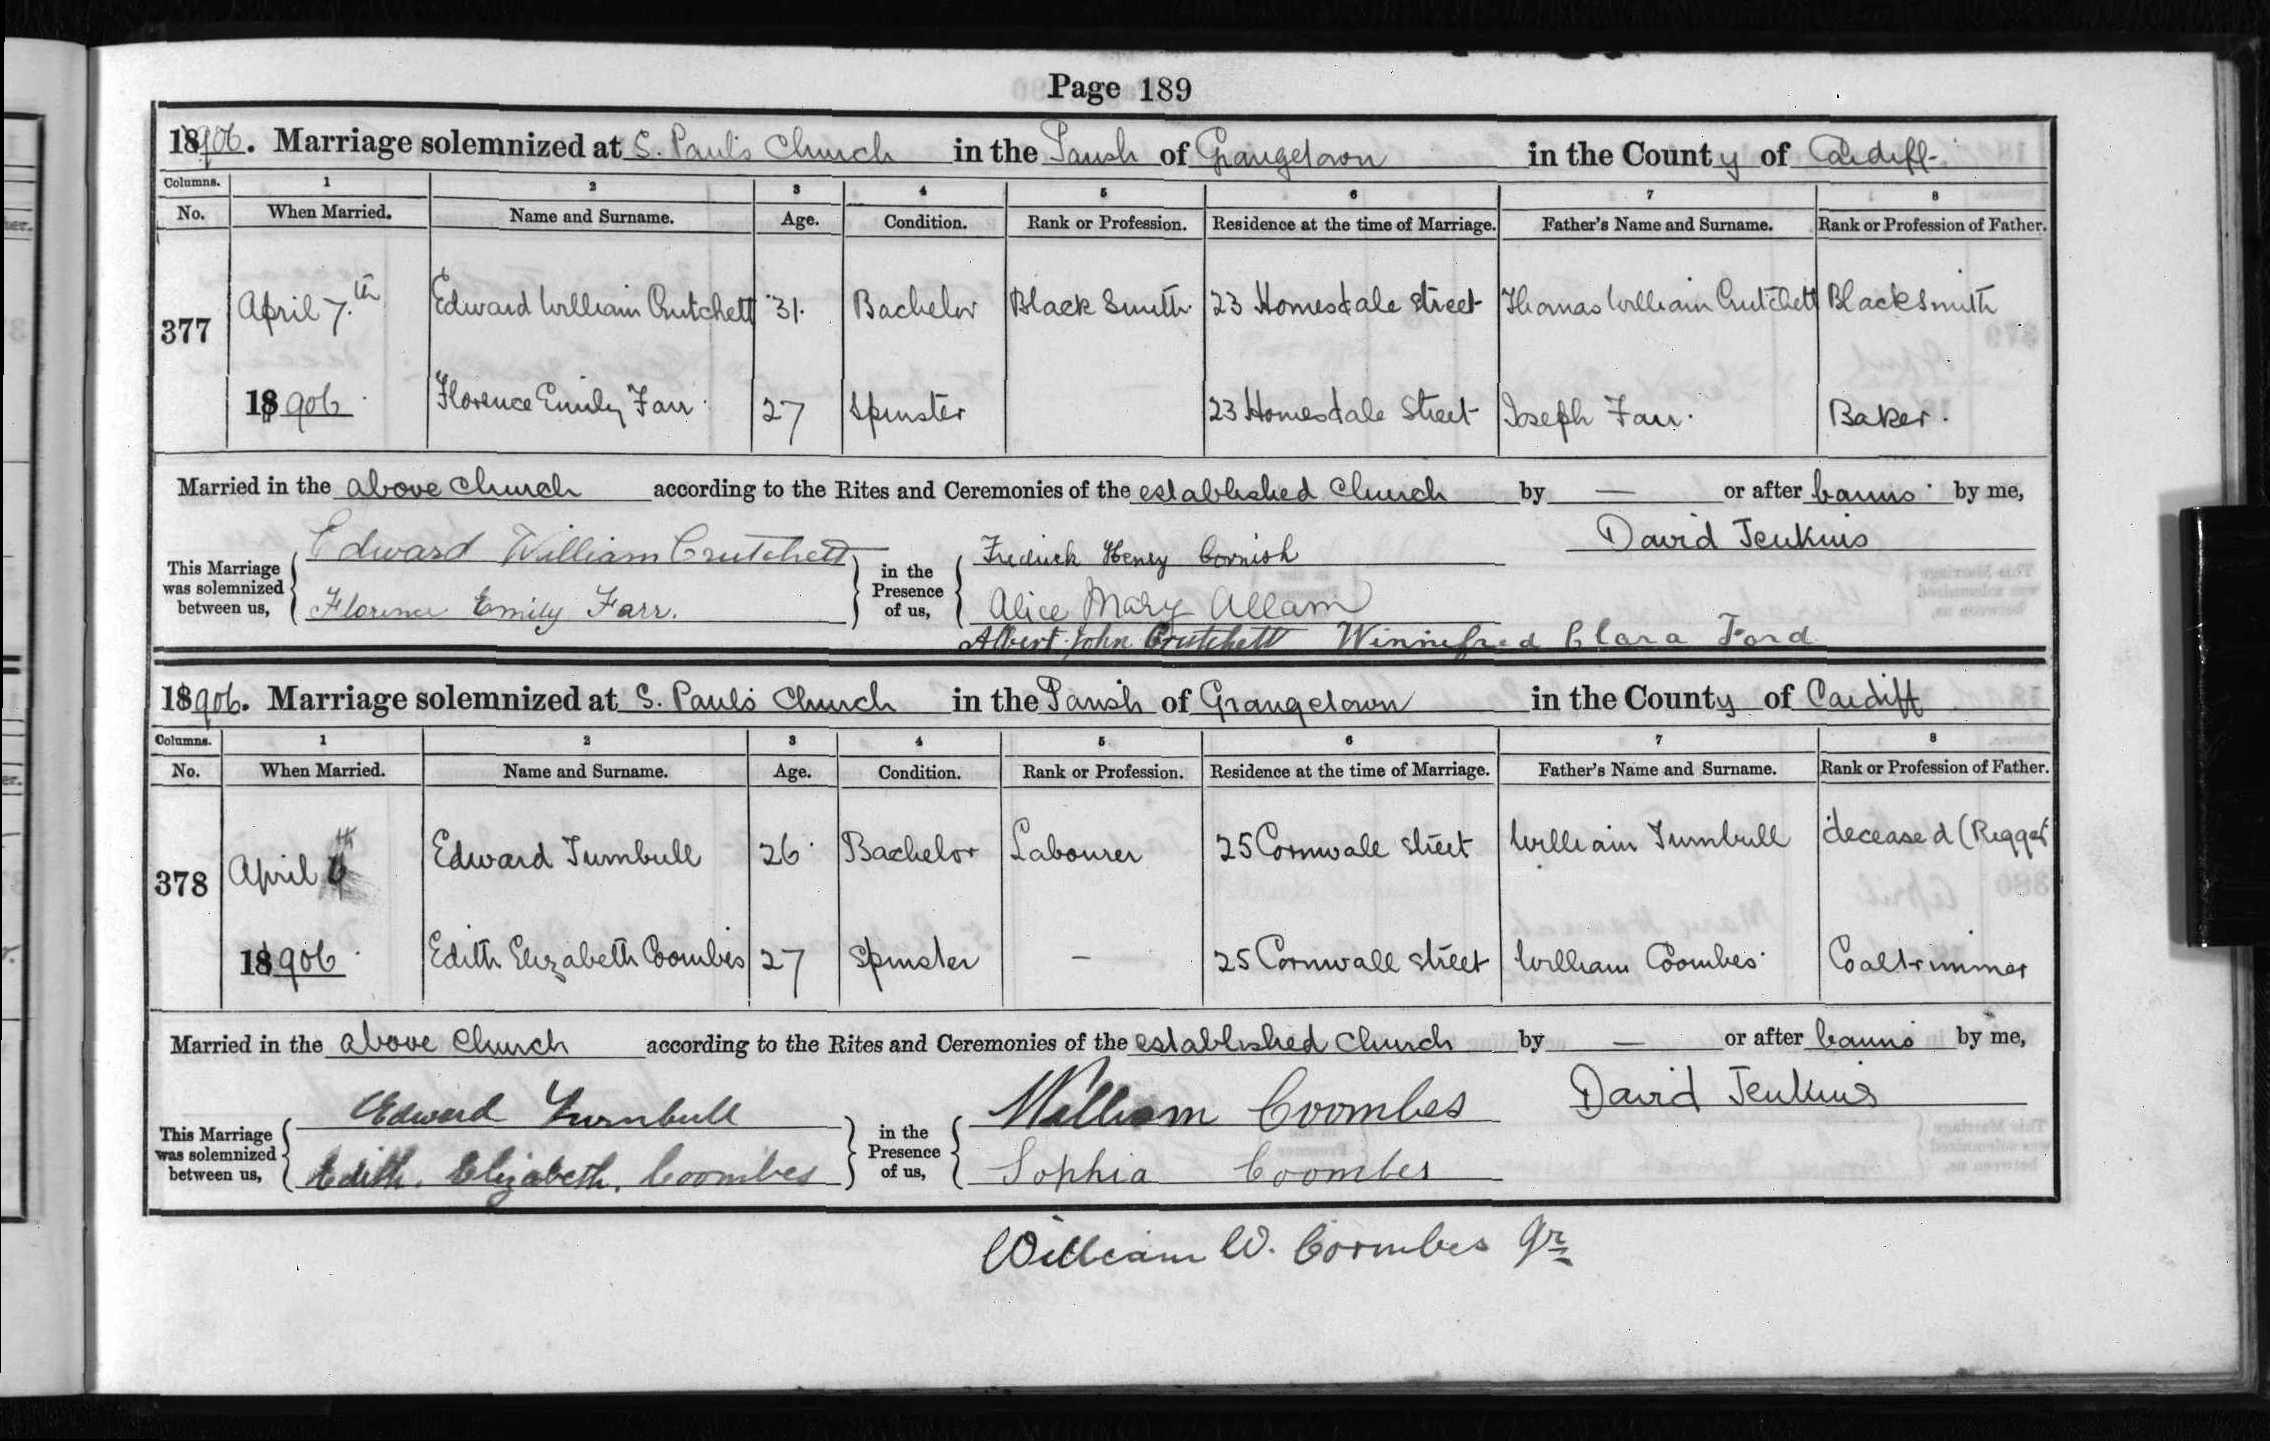 Page 189
18906. Marriage solemnized at S. Paul's Church in the Parish of Grangetown in the County of Cardiff.
Columns. 1 2 3 4 5 6 7 8
No. When Married. Name and Surname. Age. Condition. Rank or Profession. Residence at the time of Marriage. Father's Name and Surname. Rank or Profession of Father.
377 April 7.th Edward William Crutchett 31. Bachelor Black Smith 23 Homesdale Street Thomas William Crutchett Blacksmith
18906 Florence Emily Farr 27 Spinster 23 Homesdale Street Joseph Farr. Baker.
Married in the above Church according to the Rites and Ceremonies of the established Church by — or after banns by me,
Edward William Crutchett Fredrick Henry Cornish David Jenkins
This Marriage was solemnized between us, in the Presence of us,
Florence Emily Farr. Alice Mary Allam
Albert John Crutchett Winnifred Clara Ford
18906. Marriage solemnized at S. Paul's Church in the Parish of Grangetown in the County of Cardiff
Columns. 1 2 3 4 5 6 7 8
No. When Married. Name and Surname. Age. Condition. Rank or Profession. Residence at the time of Marriage. Father's Name and Surname. Rank or Profession of Father.
378 April th Edward Turnbull 26 Bachelor Labourer 25 Cornwall Street William Turnbull deceased (Rigger
18906 Edith Elizabeth Coombes 27 Spinster - 25 Cornwall Street William Coombes Coaltrimmer
Married in the above Church according to the Rites and Ceremonies of the established Church by — or after banns by me,
Edward Turnbull William Coombes David Jenkins
This Marriage was solemnized between us, in the Presence of us,
Edith. Elizabeth. Coombes Sophia Coombes
William W. Coombes Jr